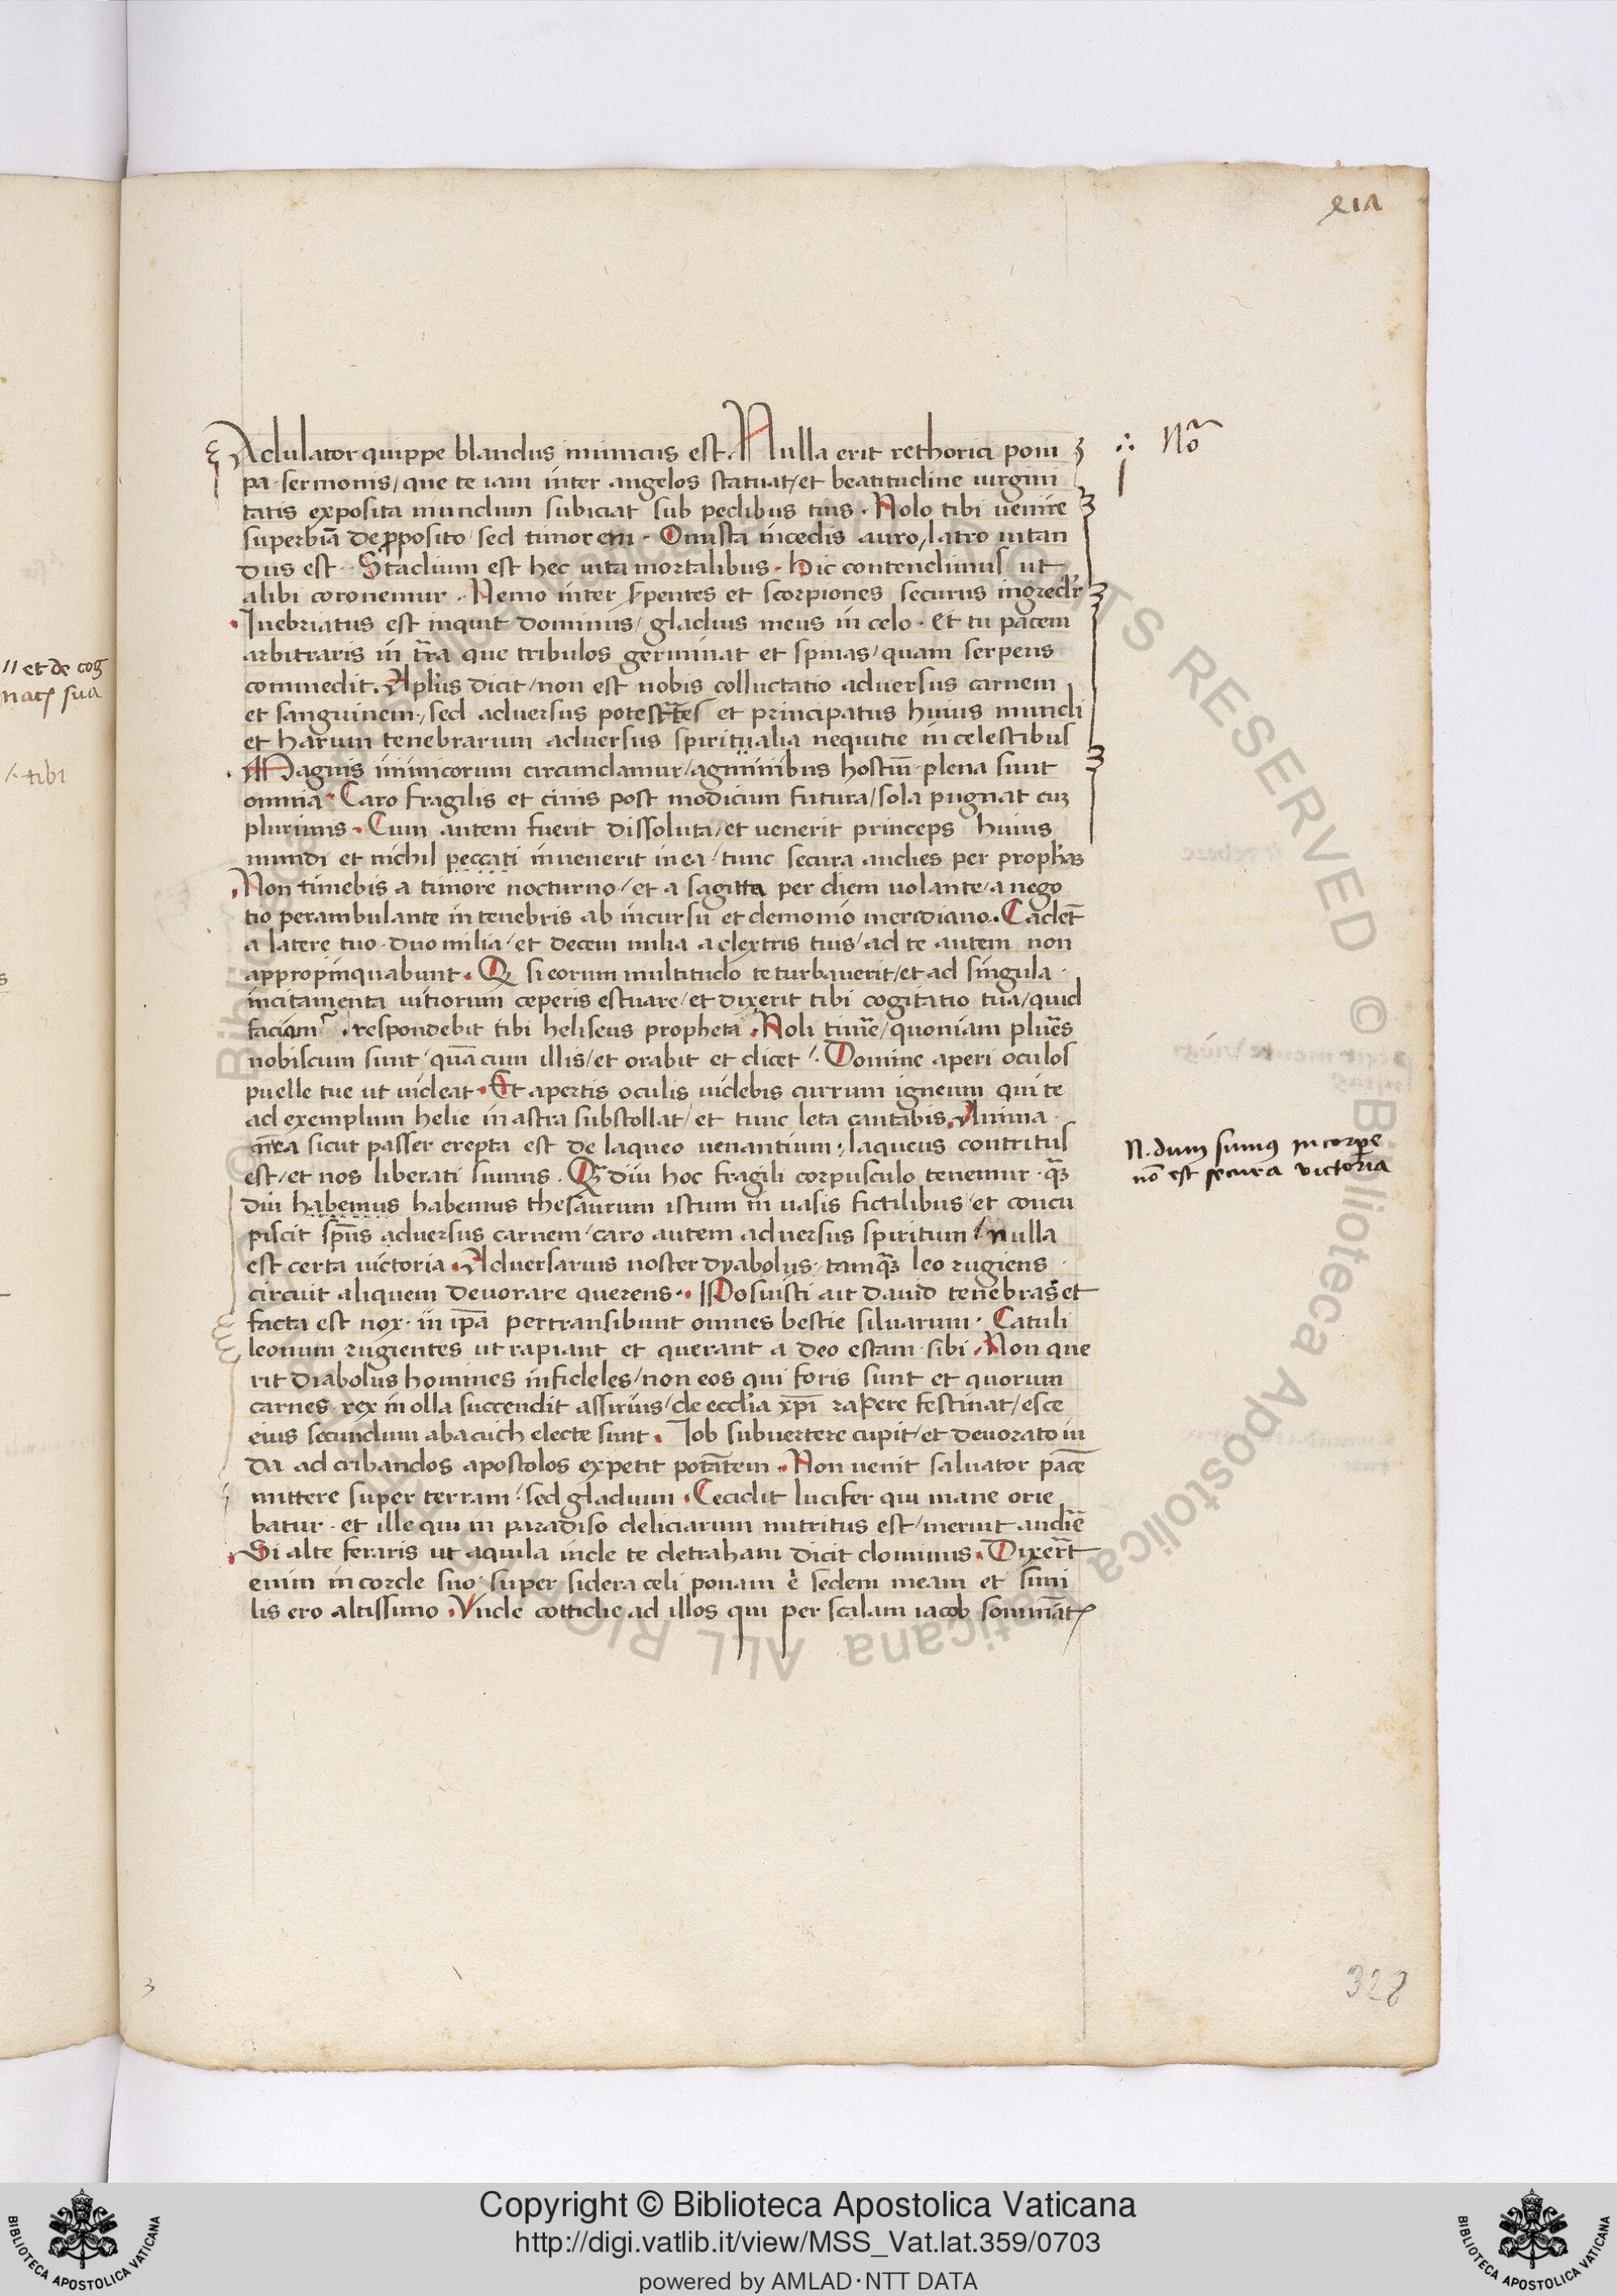 Adulator quippe blandus inimicus est. Nulla erit rethorici pom
pa sermonis/ que te iam inter angelos statuat/ et beatitudine uirgini
tatis exposita mundum subiciat sub pedibus tuis. Nolo tibi uenire
superbiā de pposito sed timorem. Onusta incedis auro/ latro uitan
dus est. Stadium est hec uita mortalibus. Hic contendimus ut
alibi coronemur. Nemo inter spentes et scorpiones securus ingredit̃
Inebriatus est inquit dominus/ gladius meus in celo. Et tu pacem
arbitraris in tr̄a que tribulos germinat et spinas/ quam serpens
commedit. Apl̄us dicit/ non est nobis colluctatio aduersus carnem
et sanguinem., sed aduersus potestãtes et principatus huius mundi
et harum tenebrarum aduersus spiritualia nequitie in celestibus
Magnis inimicorum circundamur/ agminibus hostiū plena sunt
omnia. Caro fragilis et cinis post modicum futura/ sola pugnat cuȝ
plurimis. Cum autem fuerit dissoluta/ et uenerit princeps huius
mundi et nichil peccati inuenerit in ea/ tunc secura audies per prophãȝ
Non timebis a timore nocturno/ et a sagitta per diem uolante/ a nego
tio perambulante in tenebris ab incursu et demonio meridiano. Cadēt
a latere tuo duo milia/ et decem milia a dextris tuis/ ad te autem non
appropinquabunt. Q si eorum multitudo te turbauerit/ et ad singula
incitamenta uitiorum ceperis estuare/ et dixerit tibi cogitatio tua/ quid
faciam? respondebit tibi heliseus propheta. Noli timẽ/ quoniam plurẽs
nobiscum sunt/ quā cum illis/ et orabit et dicet/. Domine aperi oculos
puelle tue ut uideat. Et apertis oculis uidebis currum igneum qui te
ad exemplum helie in astra substollat/ et tunc leta cantabis. Anima
mea sicut passer erepta est de laqueo uenantium., laqueus contritus
est/ et nos liberati sumus. Qā diu hoc fragili corpusculo tenemur. qāȝ
diu habemus habemus thesaurum istum in uasis fictilibus/ et concu
piscit sp̄us aduersus carnem/ caro autem aduersus spiritum/ nulla
est certa uictoria. Aduersarius noster dyabolus. tamqāȝ leo rugiens
circuit aliquem deuorare querens. Posuisti ait dauid tenebras et
facta est nox. in ip̄a pertransibunt omnes bestie siluarum. Catuli
leonum rugientes ut rapiant et querant a deo escam sibi. Non que
rit diabolus homines infideles/ non eos qui foris sunt et quorum
carnes rex in olla succendit assirius/ de eccl̄ia xp̄i rapere festinat/ esce
eius secundum abacuch electe sunt. Iob subuertere cupit/ et deuorato iu
da ad cribandos apostolos expetit potãtem. Non uenit saluator pacē
mittere super terram/ sed gladium. Cecidit lucifer qui mane orie
batur. et ille qui in paradiso deliciarum nutritus est/ meruit audiẽ
Si alte feraris ut aquila inde te detraham dicit dominus. Dixerãt
enim in corde suo super sidera celi ponam ẽ sedem meam et simi
lis ero altissimo. Vnde cottidie ad illos qui per scalam iacob somniāt
Nõ
N. dum sumus in corpe
nō est secura victoria
328
// et de cog
/. tibi
Copyright © Biblioteca Apostolica Vaticana
http://digi.vatlib.it/view/MSS_Vat.lat.359/0703
powered by AMLAD·NTT DATA
BIBLIOTECA APOSTOLICA VATICANA
BIBLIOTECA APOSTOLICA VATICANA
© Biblioteca Apostolica Vaticana ALL RIGHTS RESERVED
© Biblioteca Apostolica Vaticana ALL RIGHTS RESERVED